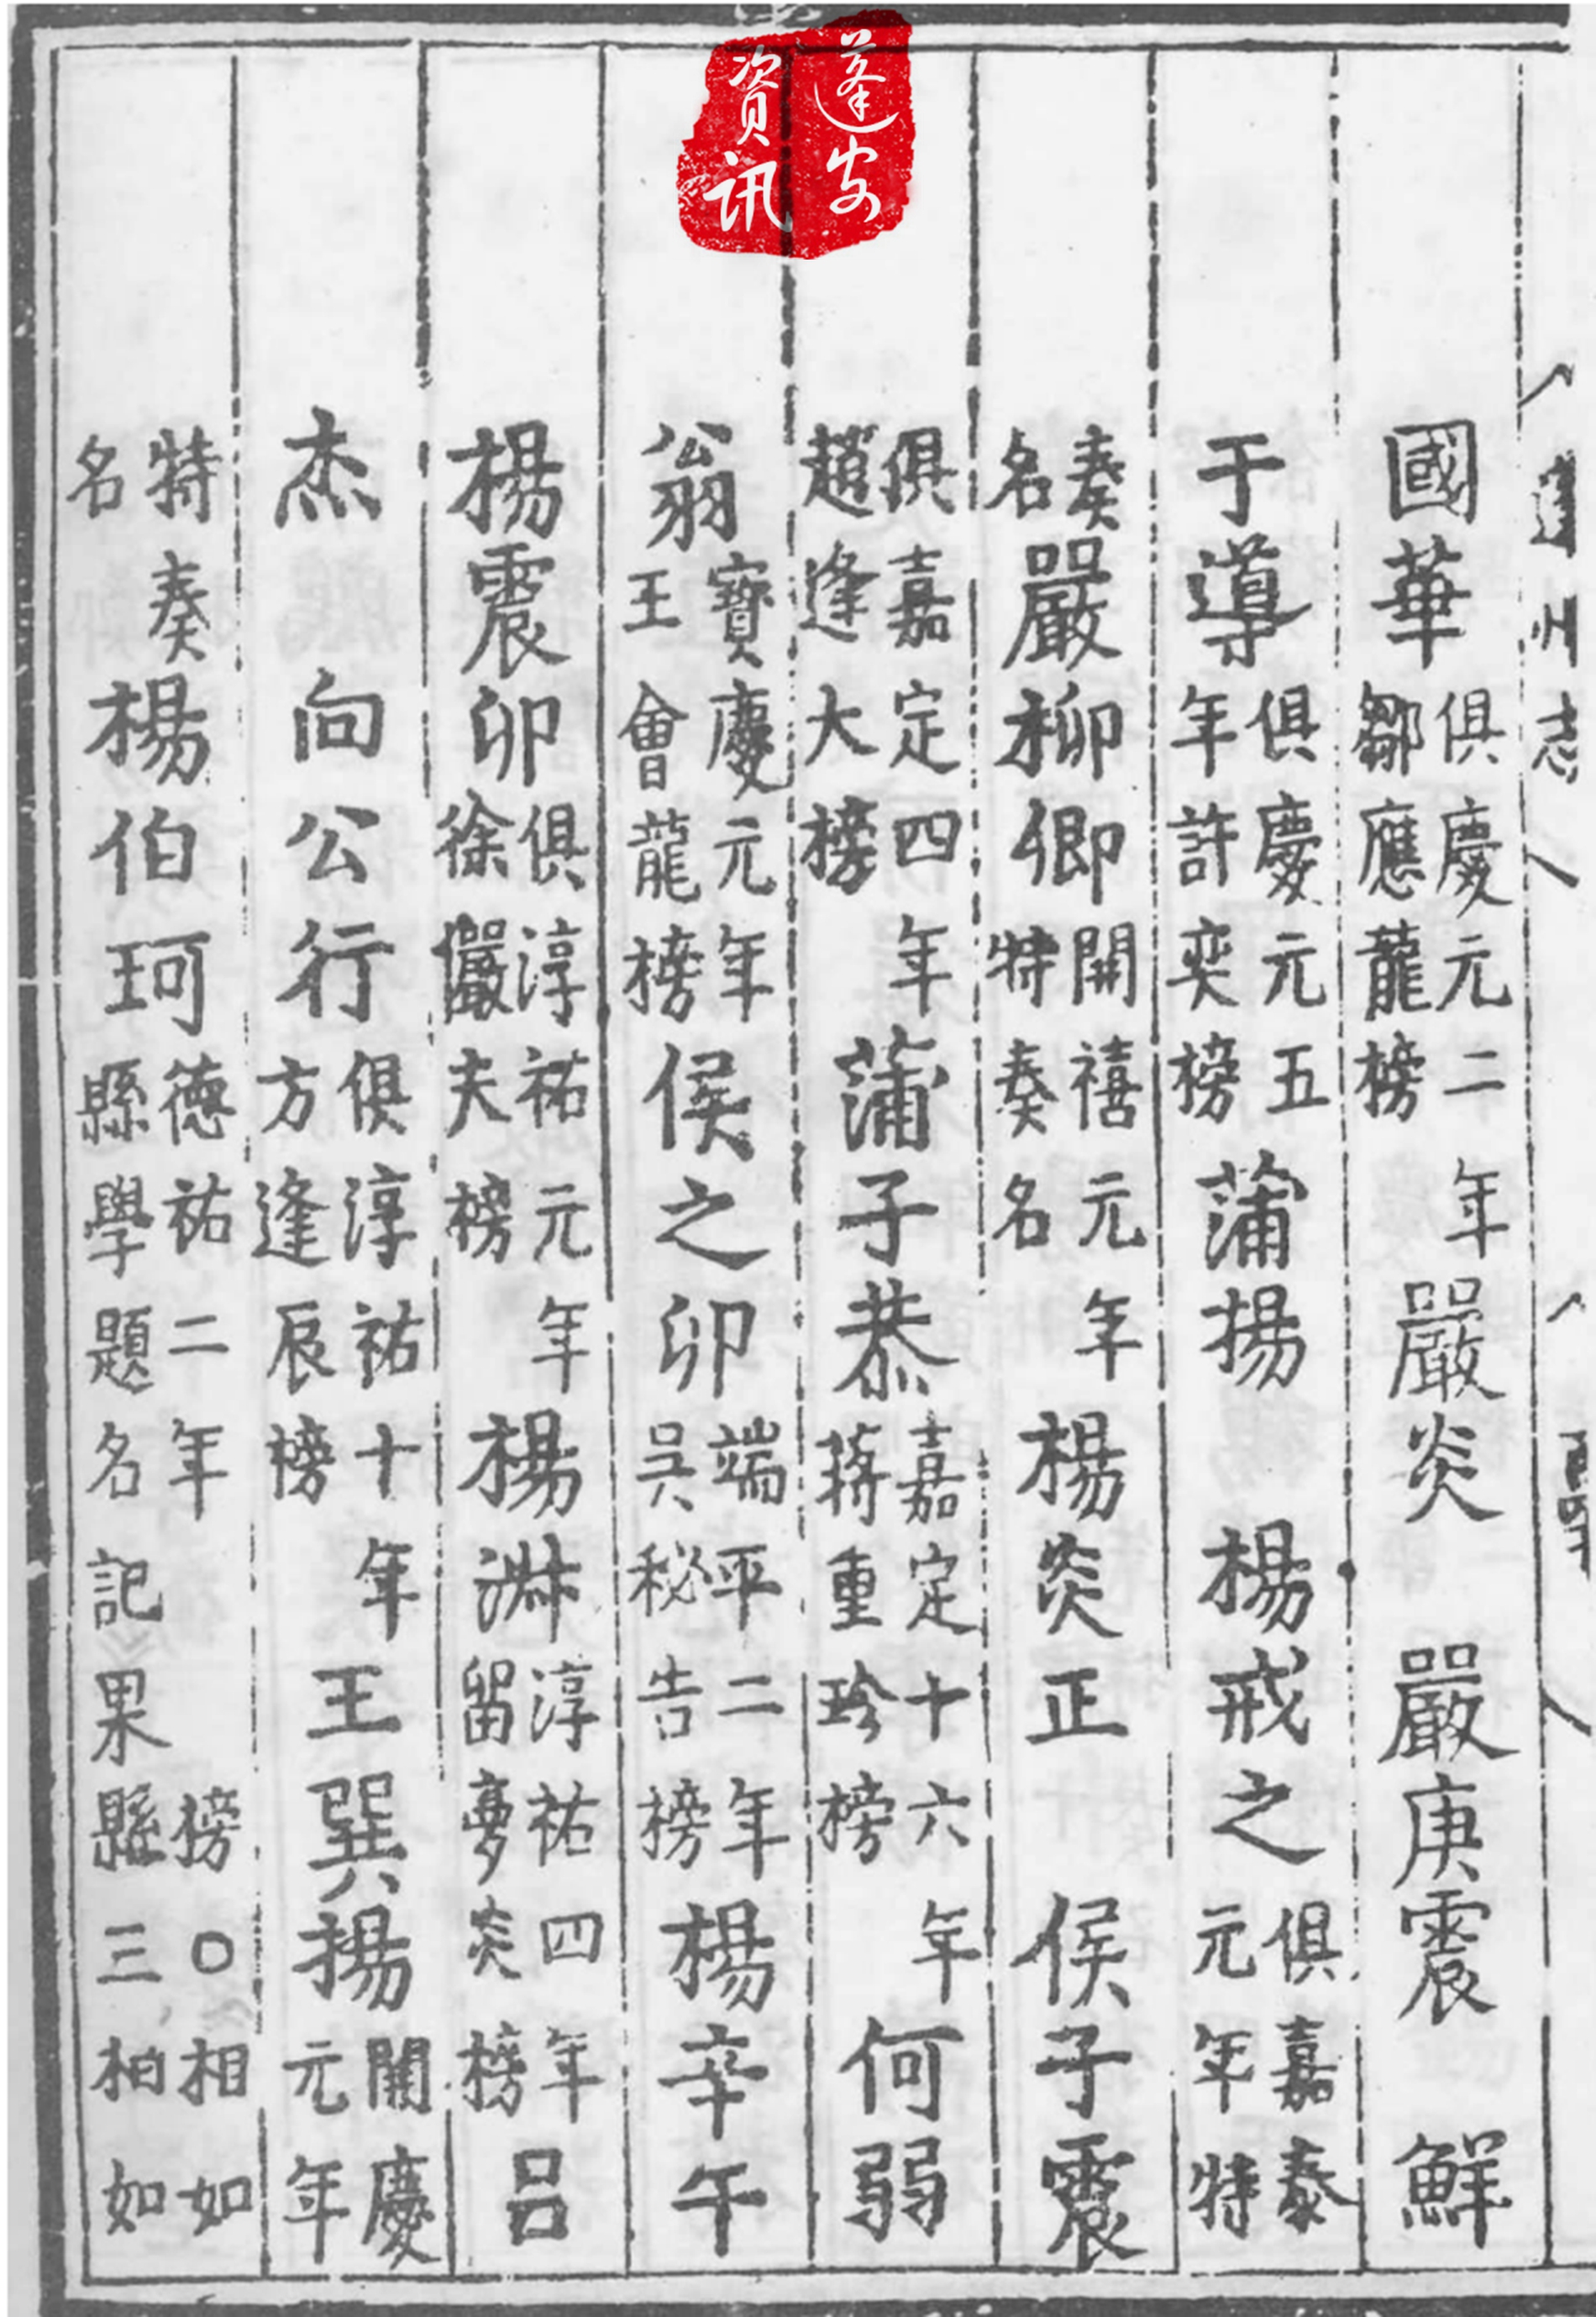 蓬州志
國華俱慶元二年鄒應龍榜嚴炎 嚴庚震 鮮
于導俱慶元五年許奕榜蒲揚 楊戒之俱嘉泰元年特
奏名嚴柳卿開禧元年特奏名楊炎正 侯子震
俱嘉定四年趙逢大榜蒲子恭嘉定十六年蔣重珍榜何弱
翁寶慶元年王會龍榜侯之卯端平二年吴秘告榜楊辛午
楊震卯俱淳祐元年徐儼夫榜楊淋淳祐四年留夢炎榜吕
杰 向公行俱淳祐十年方逢辰榜王巽揚開慶元年
特奏名楊伯珂德祐二年榜○相如縣學題名記果縣三柏如
蓬安
資訊